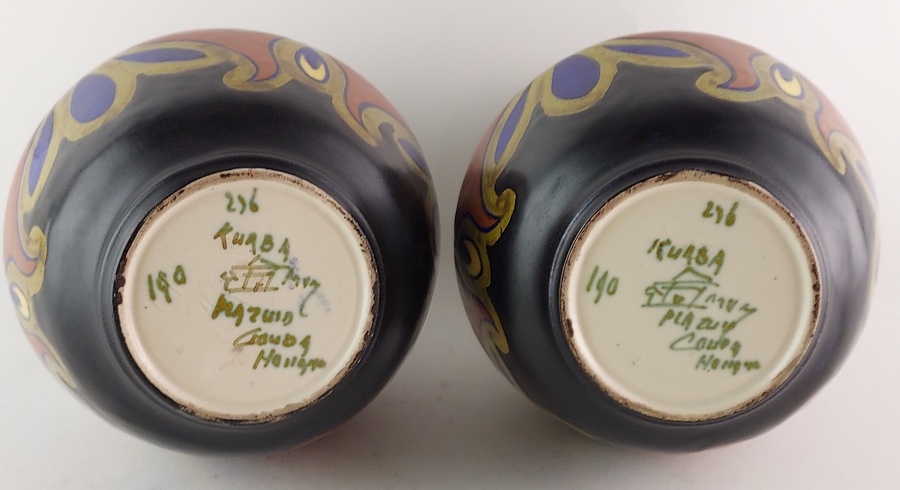 236
KURBA
190
PLAZUID
GOUDA
Holland
236
KURBA
190
PLAZUID
GOUDA
Holland